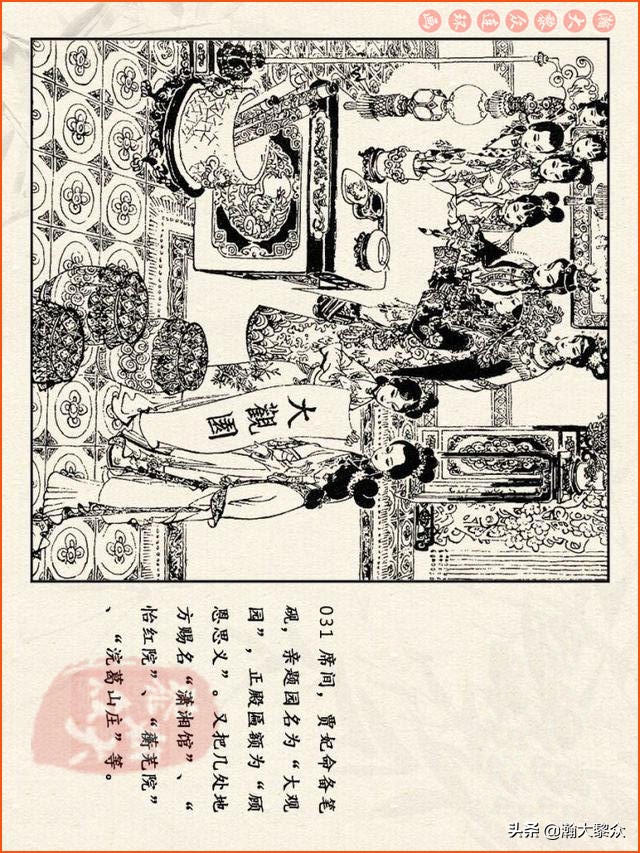 瀚大黎众连环画
大觀園
031 席间，贾妃命备笔
砚，亲题园名为“大观
园”，正殿匾额为“顾
恩思义”。又把几处地
方赐名“潇湘馆”、“
怡红院”、“蘅芜院”
、“浣葛山庄”等。
头条 @瀚大黎众